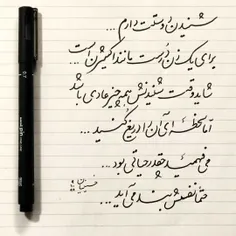 شنیدن دوستت دارم ...
برای یک زن درست مانند اکسیژن است ...
شاید وقت شنیدنش هیچ چیز عادی باشد
اما لحظه ای آن را دریغ کنید ...
می فهمید چقدر حیاتی بود ...
حتما نفسش بند می آید ...